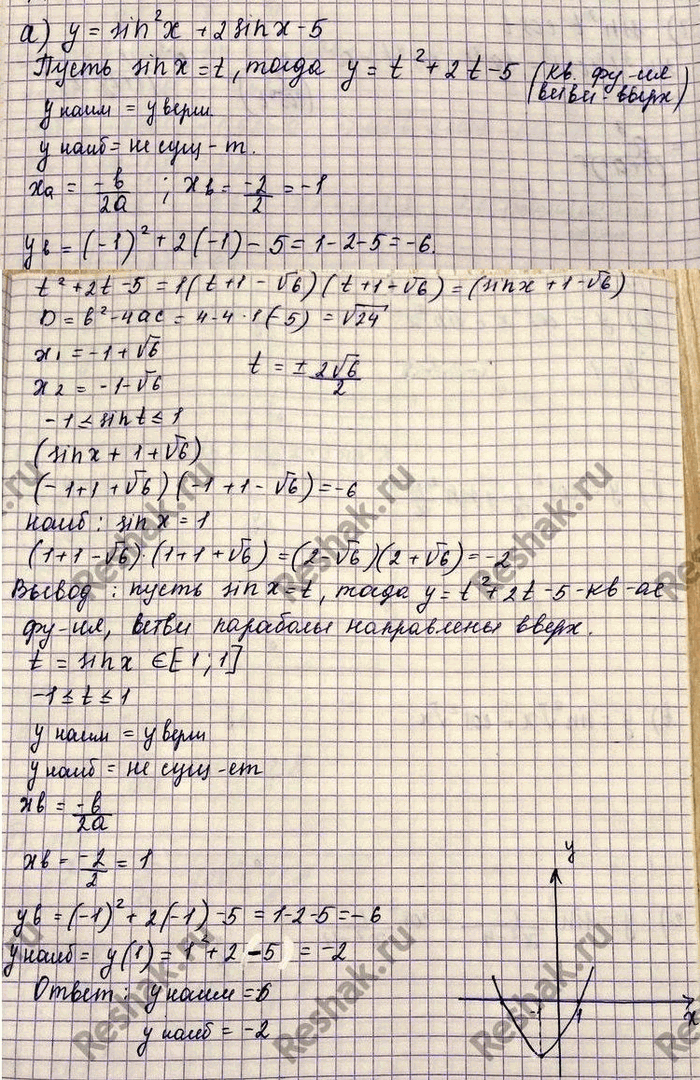 а) y = sin²x + 2 sinx - 5
Пусть sinx = t, тогда y = t² + 2t - 5 (кв. фу-ия ветви - вверх)
y наим = y верш.
y наиб = не сущ-т.
xв = -b/2a ; xв = -2/2 = -1
yв = (-1)² + 2(-1) - 5 = 1 - 2 - 5 = -6.
t² + 2t - 5 = 1(t + 1 - √6)(t + 1 - √6) = (sinx + 1 - √6)
D = b² - 4ac = 4 - 4 · 1(-5) = √24
x₁ = -1 + √6
t = ± 2√6/2
x₂ = -1 - √6
-1 ≤ sin t ≤ 1
(sinx + 1 + √6)
(-1 + 1 + √6)(-1 + 1 - √6) = -6
наиб: sinx = 1
(1 + 1 - √6) · (1 + 1 + √6) = (2 - √6)(2 + √6) = -2
Вывод: пусть sinx = t, тогда y = t² + 2t - 5 - кв-ае
фу-ия, ветви параболы направлены вверх.
t = sinx ∈ [1; 1]
-1 ≤ t ≤ 1
y наим = y верш
y наиб = не сущ-ет
xв = -b/2a
xв = -2/2 = 1
yв = (-1)² + 2(-1) - 5 = 1 - 2 - 5 = -6
y наиб = y(1) = 1² + 2 - 5 = -2
Ответ: y наим = -6
y наиб = -2
y
-1
1
x
Reshak.ru
Reshak.ru
Reshak.ru
Reshak.ru
Reshak.ru
Reshak.ru
Reshak.ru